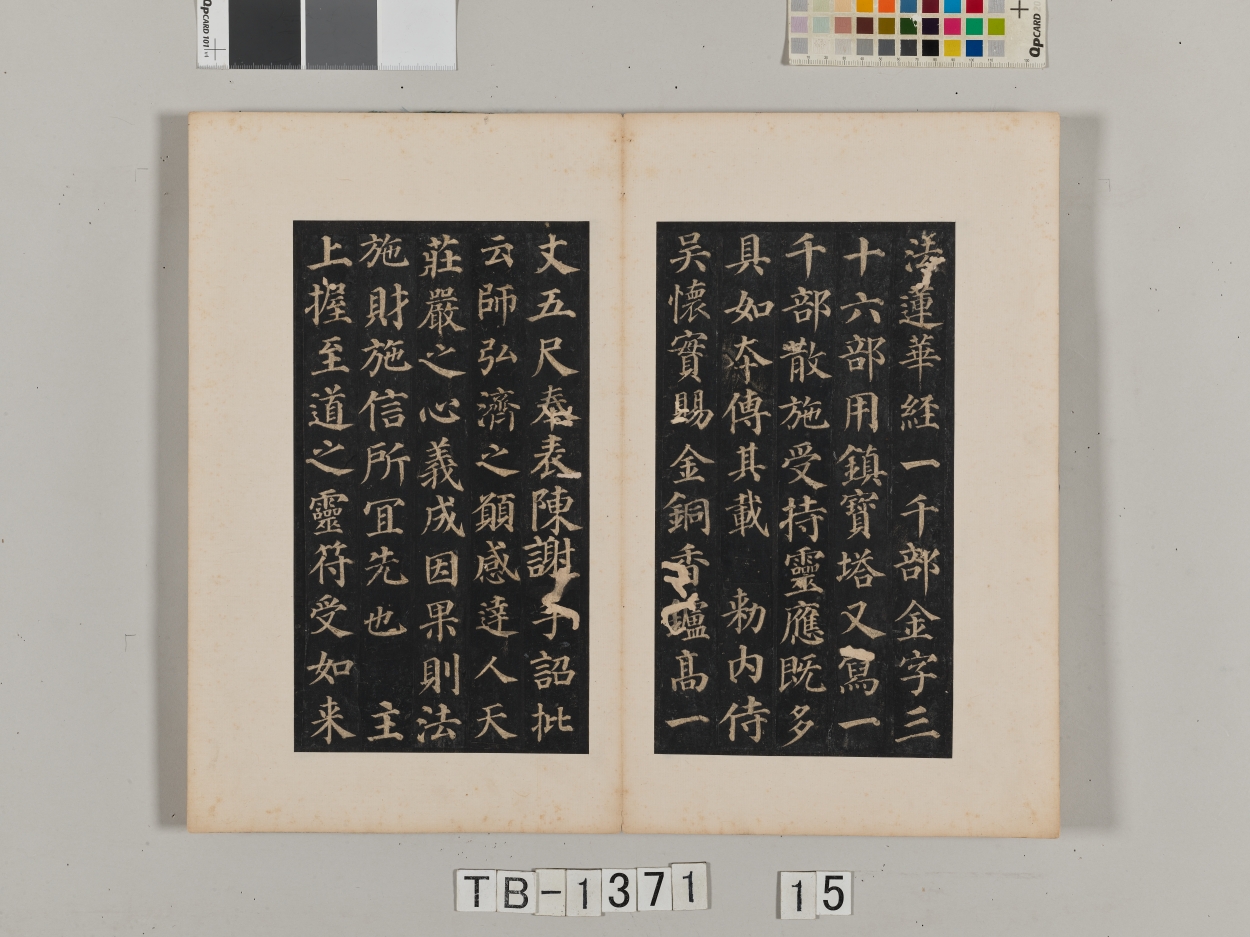 QpCARD 101
QpCARD
法蓮華經一千部金字三
十六部用鎮寶塔又寫一
千部散施受持靈應既多
具如本傳其載　勑内侍
吴懷實賜金銅香爐高一
丈五尺奉表陳謝手詔批
云師弘濟之願感達人天
莊嚴之心義成因果則法
施財施信所冝先也　主
上握至道之靈符受如来
TB-1371 15